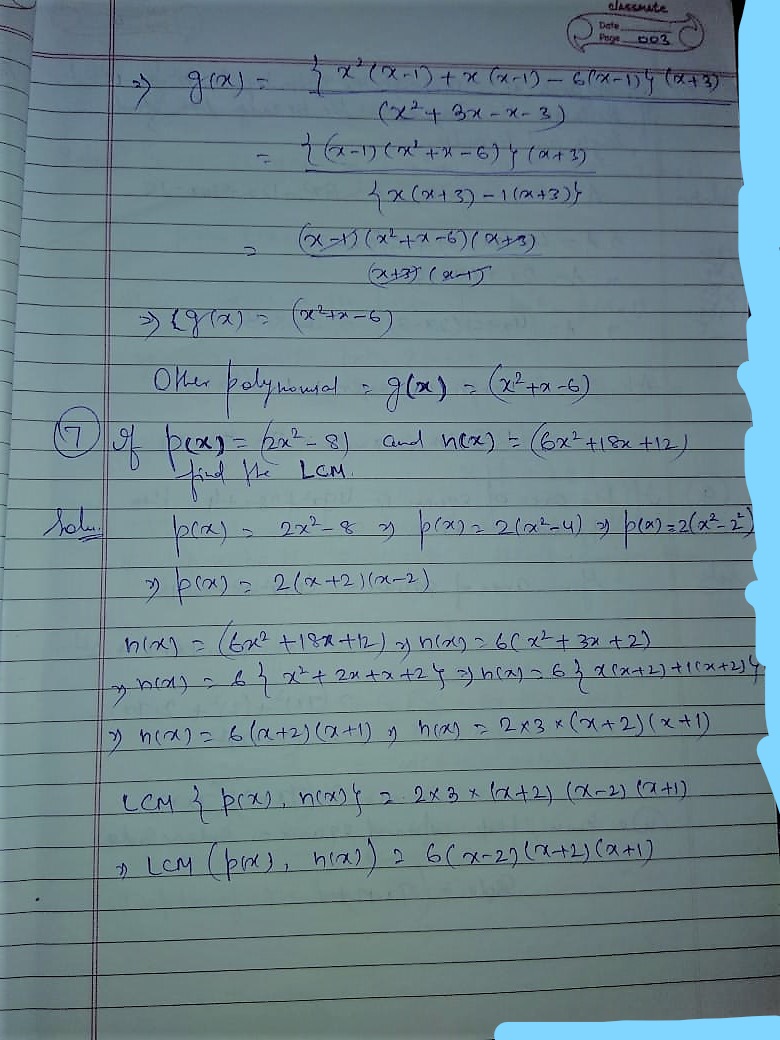 classmate
Date
Page 003
⇒ g(x) = {x²(x-1) + x(x-1) - 6(x-1)} (x+3)
(x² + 3x - x - 3)
= {(x-1)(x²+x-6)} (x+3)
{x(x+3) - 1(x+3)}
= (x-1)(x²+x-6)(x+3)
(x+3)(x-1)
⇒ {g(x) = (x²+x-6)
Other polynomial = g(x) = (x²+x-6)
7 If p(x) = (2x²-8) and n(x) = (6x²+18x+12)
find the LCM.
Soln. p(x) = 2x²-8 ⇒ p(x) = 2(x²-4) ⇒ p(x)=2(x²-2²)
⇒ p(x) = 2(x+2)(x-2)
n(x) = (6x²+18x+12) ⇒ n(x) = 6(x²+3x+2)
⇒ n(x) = 6{x²+2x+x+2} ⇒ n(x) = 6{x(x+2)+1(x+2)}
⇒ n(x) = 6(x+2)(x+1) ⇒ n(x) = 2×3×(x+2)(x+1)
LCM {p(x), n(x)} = 2×3×(x+2)(x-2)(x+1)
⇒ LCM (p(x), n(x)) = 6(x-2)(x+2)(x+1)